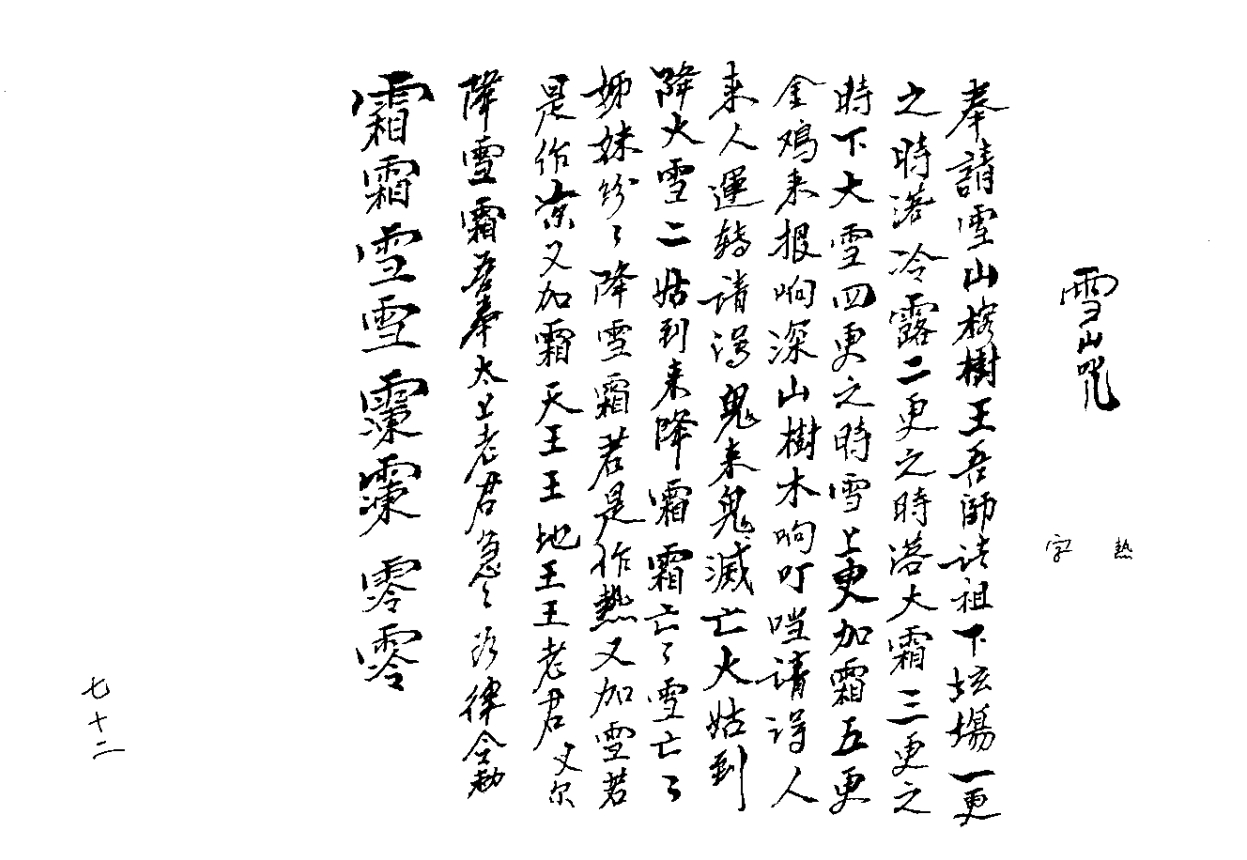 雪山咒
熱
字
奉請雪山榕樹王吾師請祖下坛場一更
之時落冷露二更之時落大霜三更之
時下大雪四更之時雪上更加霜五更
金鸡来报响深山樹木响叮噹請得人
来人運轉請得鬼来鬼滅亡大姑到
降大雪二姑到来降霜霜亡々雪亡々
姊妹紛々降雪霜若是作熱又加雪若
是作凉又加霜天王王地王王老君
降雪霜吾奉太上老君急々律令勅
霜霜雪雪零零
七十二